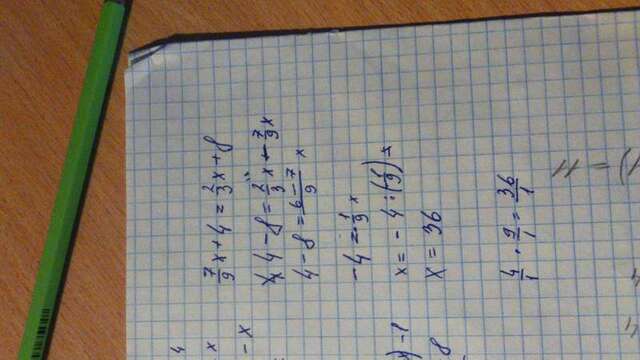 7/9 x + 4 = 2/3 x + 8
4 - 8 = 2/3 x - 7/9 x
4 - 8 = (6 - 7)/9 x
-4 = -1/9 x
x = - 4 : (-1/9) =
x = 36
4/1 · 9/1 = 36/1